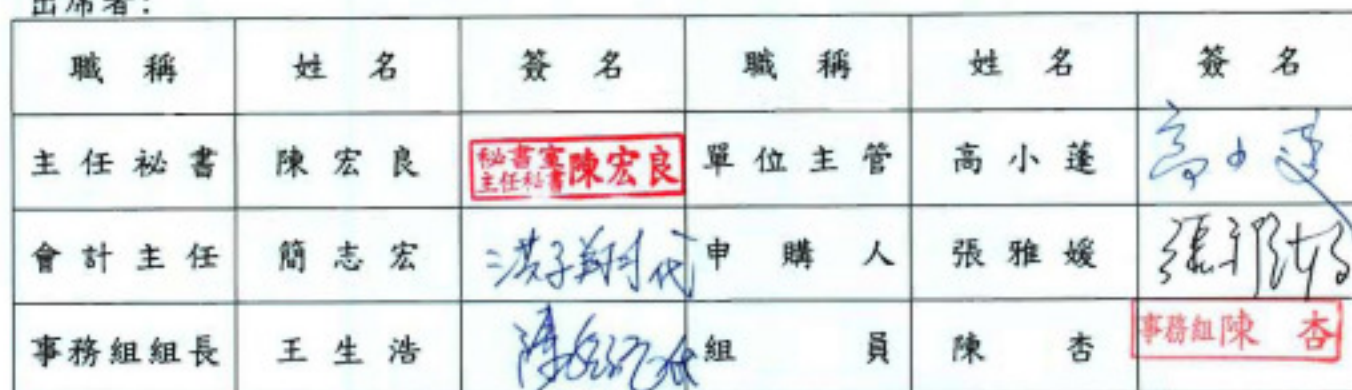 出席者:
職稱 姓名 簽名 職稱 姓名 簽名
主任秘書 陳宏良 秘書室主任秘書陳宏良 單位主管 高小蓬 高小蓬
會計主任 簡志宏 代 申購人 張雅媛 張雅媛
事務組組長 王生浩 組員 陳杏 事務組陳杏